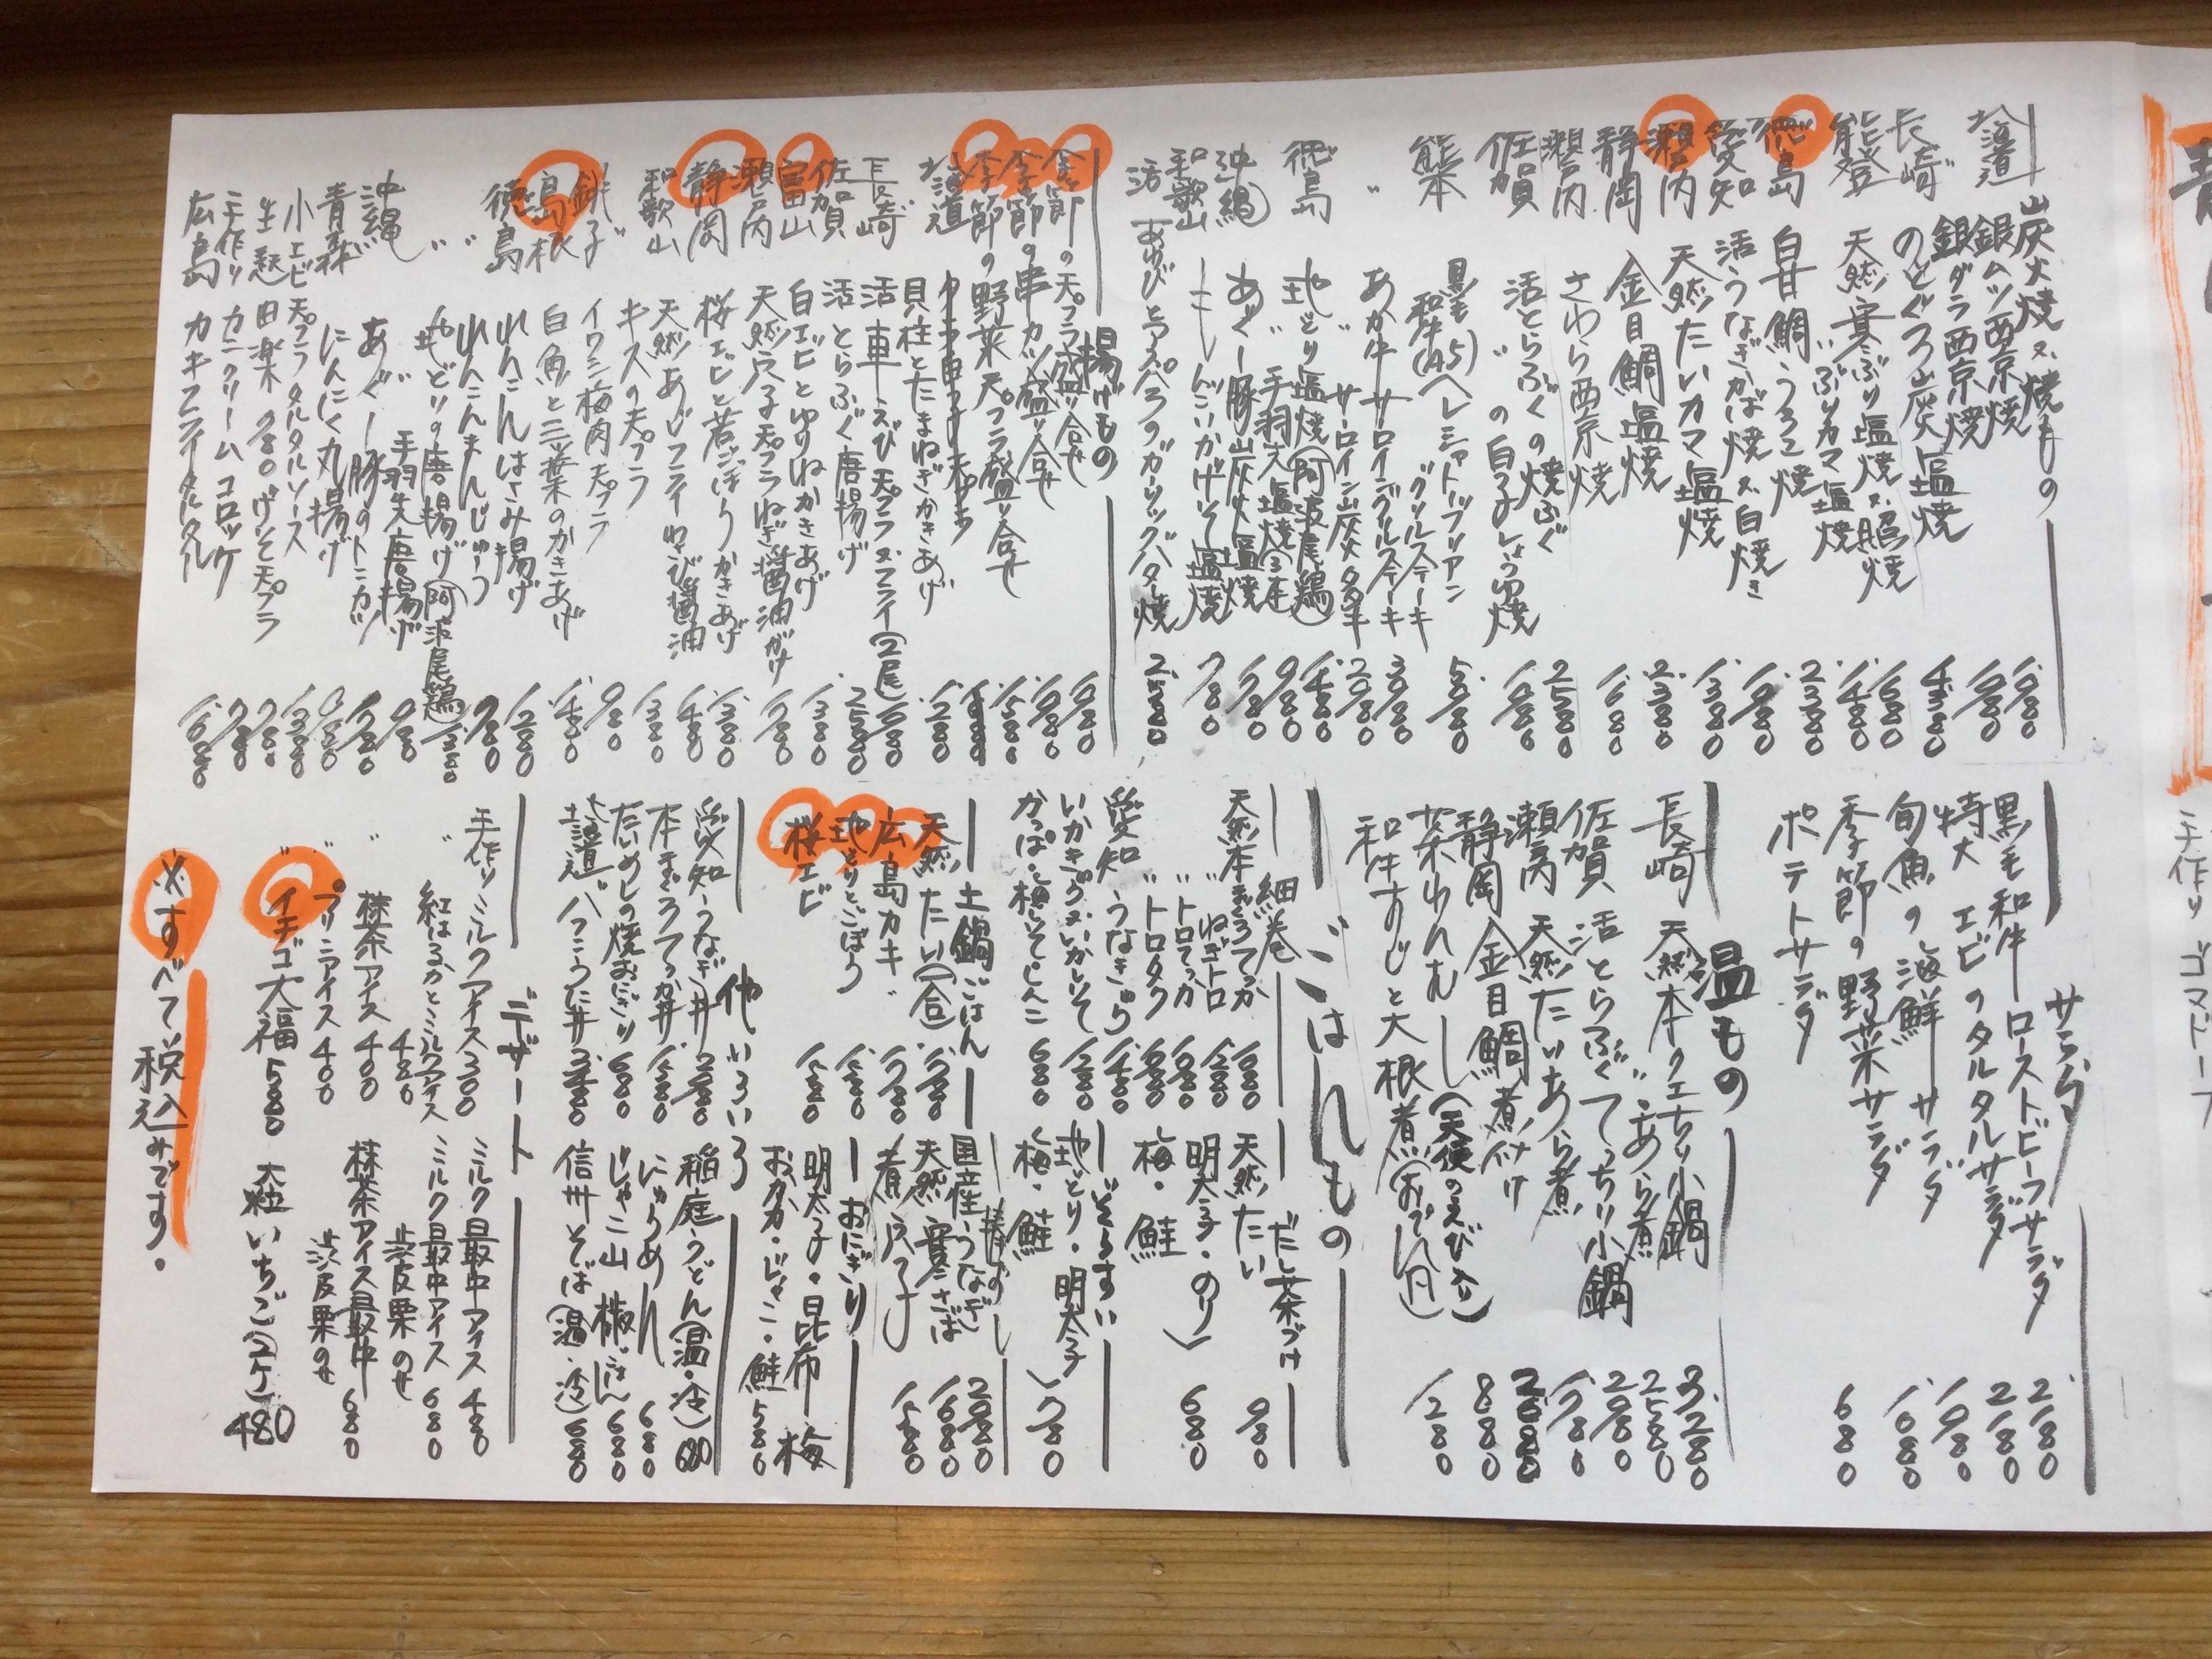 炭火焼又焼もの
北海道 銀ムツ西京焼 1.980
銀ダラ西京焼 1.980
長崎 のどぐろ炭塩焼 4.380
能登 天然寒ぶり塩焼又照焼 1.680
〃 ぶりカマ塩焼 1.480
徳島 白甘鯛うろこ焼 2.380
愛知 活うなぎかば焼又白焼き
瀬戸内 天然たいカマ塩焼 1.380
静岡 金目鯛塩焼 2.380
瀬戸内 さわら西京焼 1.680
佐賀 活とらふぐの焼ふぐ 2.580
〃 の白子しょうゆ焼
黒毛和牛(A5)ヘレシャトーブリアングリルステーキ 5.080
熊本 あか牛サーロイングリルステーキ 3.080
〃 サーロイン炭火タタキ 2.080
徳島 地どり塩焼(阿波尾鶏) 1.480
〃 手羽先塩焼 980
沖縄 あぐー豚炭火塩焼 1.780
和歌山 しんこいかげそ塩焼 780
活あわびとアスパラのガーリックバター焼 2.580
揚げもの
季節の天プラ盛り合せ 1.980
季節の串カツ盛り合せ 1.980
季節の野菜天プラ盛り合せ 1.580
北海道
貝柱とたまねぎかきあげ 1.280
長崎 活車えび天プラ又フライ(2尾)
佐賀 活とらふぐ唐揚げ 2.580
富山 白エビとゆりねかきあげ 1.380
瀬戸内 天然穴子天プラねぎ醤油がけ 1.780
静岡 桜エビと若ごぼうかきあげ 1.380
和歌山 天然あじフライわさび醤油 1.480
キスの天プラ 1.380
銚子 イワシ梅肉天プラ 980
島根 白魚と三ッ葉のかきあげ 1.480
徳島 れんこんはさみ揚げ 1.280
〃 れんこんまんじゅう 980
〃 地どりの唐揚げ(阿波尾鶏) 1.380
〃 手羽先唐揚げ 980
沖縄 あぐー豚のトンカツ
青森 にんにく丸揚げ
小エビ天プラタルタルソース 1.380
生麩田楽 780 げそ天プラ 780
手作りカニクリームコロッケ
広島 カキフライタルタル 1.680
サラダ
黒毛和牛ローストビーフサラダ 2.180
特大エビのタルタルサラダ 2.180
旬魚の海鮮サラダ 1.980
季節の野菜サラダ 1.080
ポテトサラダ 680
温もの
長崎 天然本クエちり小鍋 3.280
〃 あら煮 2.580
佐賀 活とらふぐてっちり小鍋 2.080
瀬戸内 天然たいあら煮 1.780
静岡 金目鯛煮付け 2.680
茶わんむし(天使のえび入り) 880
和牛すじと大根煮(おでん風) 1.280
ごはんもの
細巻
天然本まぐろてっか 1.680
〃 ねぎトロ 1.280
〃 トロてっか
〃 トロタク
愛知 うなきゅう 1.480
いかきゅう又いかしそ 1.280
かっぱ・梅しそ・しんこ 680
だし茶づけ
天然たい 980
明太子・のり
梅・鮭 680
ぞうすい
地どり・明太子
梅・鮭 780
土鍋ごはん
天然たい(一合) 1.780
広島カキ 1.780
地どりとごぼう
桜エビ
棒ずし
国産うなぎ 2.080
天然寒さば 1.680
煮穴子 1.580
おにぎり
明太子・昆布・梅
おかか・じゃこ・鮭 580
他いろいろ
愛知うなぎ丼
本まぐろてっか丼
たいめしの焼おにぎり 680
北海道バフンうに丼
稲庭うどん(温・冷) 680
にゅうめん 680
じゃこ山椒ごはん 680
信州そば(温・冷) 680
デザート
手作りミルクアイス 300
〃 紅はるかとミルクアイス 480
〃 抹茶アイス 400
〃 プリンアイス 400
〃 イチゴ大福 580
ミルク最中アイス 480
ミルク最中アイス渋皮栗のせ 680
抹茶アイス最中渋皮栗のせ 680
大粒いちご(2ケ) 480
※すべて税込みです。
手作りゴマドーフ